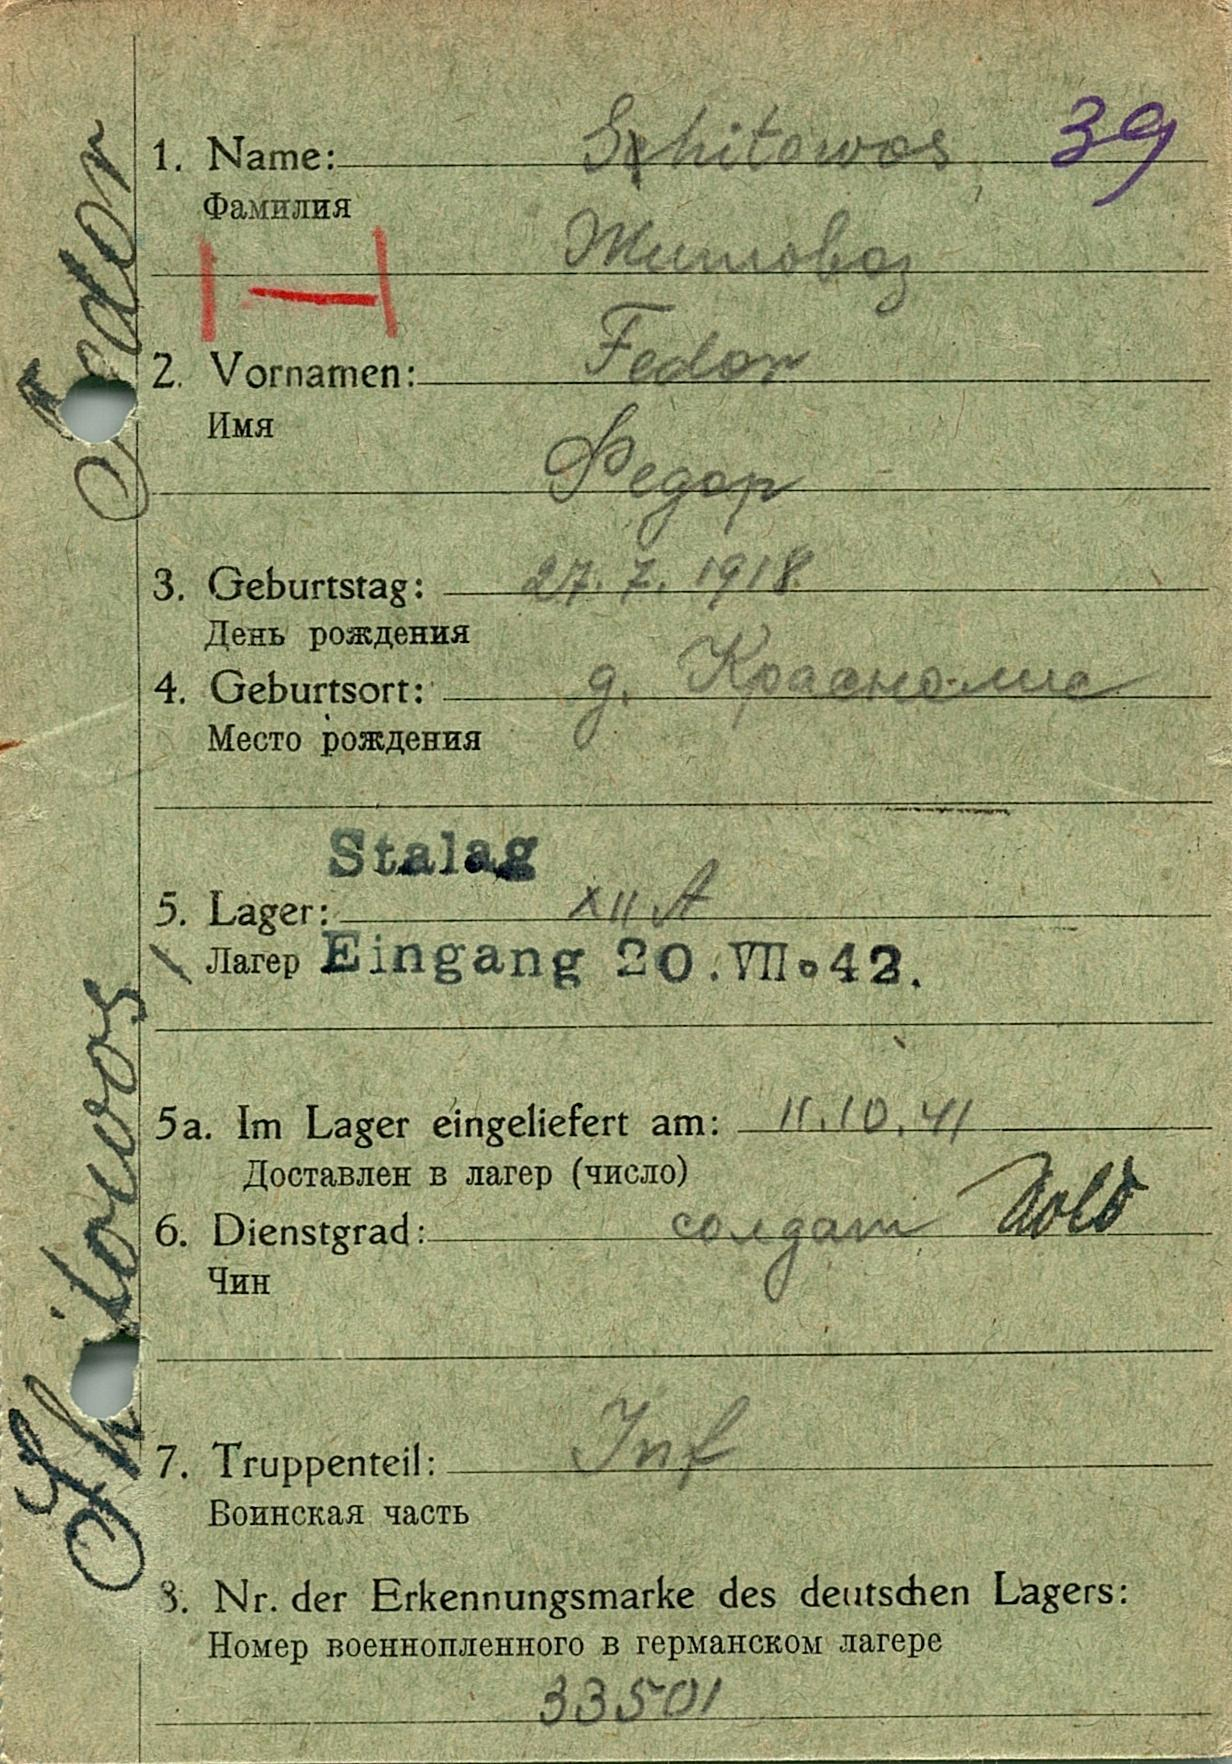 1. Name: Schitowos 39
Фамилия
Житовоз
2. Vornamen: Fedor
Имя
Федор
3. Geburtstag: 27. 7. 1918.
День рождения
4. Geburtsort: д.
Место рождения
Stalag
5. Lager: XII A
Лагер Eingang 20.VII.42.
5a. Im Lager eingeliefert am: 11.10.41
Доставлен в лагер (число)
6. Dienstgrad: солдат Sold
Чин
7. Truppenteil: Inf
Воинская часть
8. Nr. der Erkennungsmarke des deutschen Lagers:
Номер военнопленного в германском лагере
33501
Shitowos Fedor